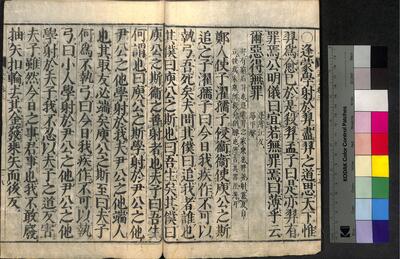 ○逄蒙學射於羿盡羿之道思天下惟
羿爲愈己於是殺羿孟子曰是亦羿有
罪焉公明儀曰宜若無罪焉曰薄乎云
爾惡得無罪
鄭人使子濯孺子侵衛衛使庾公之斯
追之子濯孺子曰今日我疾作不可以
執弓吾死矣夫問其僕曰追我者誰也
其僕曰庾公之斯也曰吾生矣其僕曰
庾公之斯衛之善射者也夫子曰吾生
何謂也曰庾公之斯學射於尹公之他
尹公之他學射於我夫尹公之他端人
也其取友必端矣庾公之斯至曰夫子
何爲不執弓曰今日我疾作不可以執
弓曰小人學射於尹公之他尹公之他
學射於夫子我不忍以夫子之道反害
夫子雖然今日之事君事也我不敢廢
抽矢扣輪去其金發乘矢而後反
KODAK Color Control Patches